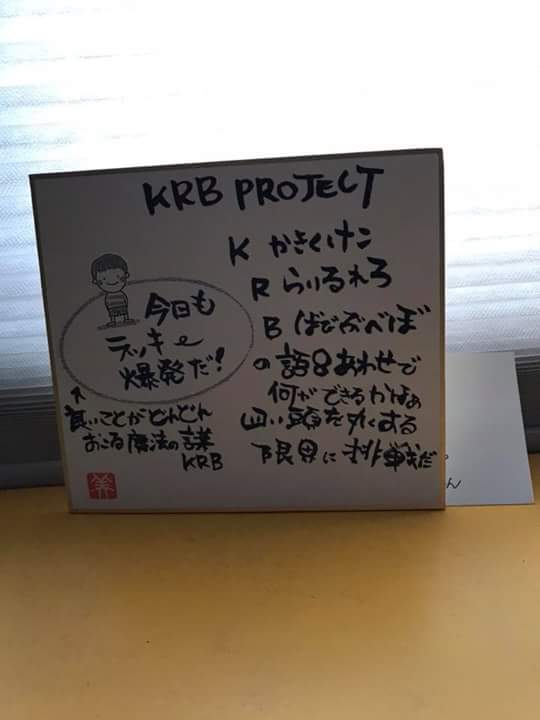 KRB PROJECT
K かきくけこ
R らりるれろ
B ばびぶべぼ
の語呂あわせで
何ができるかなぁ
四い頭を丸くする
限界に挑戦だ
今日も
ラッキー
爆発だ!
↑
良いことがどんどん
おこる魔法の言葉
KRB
美
ん